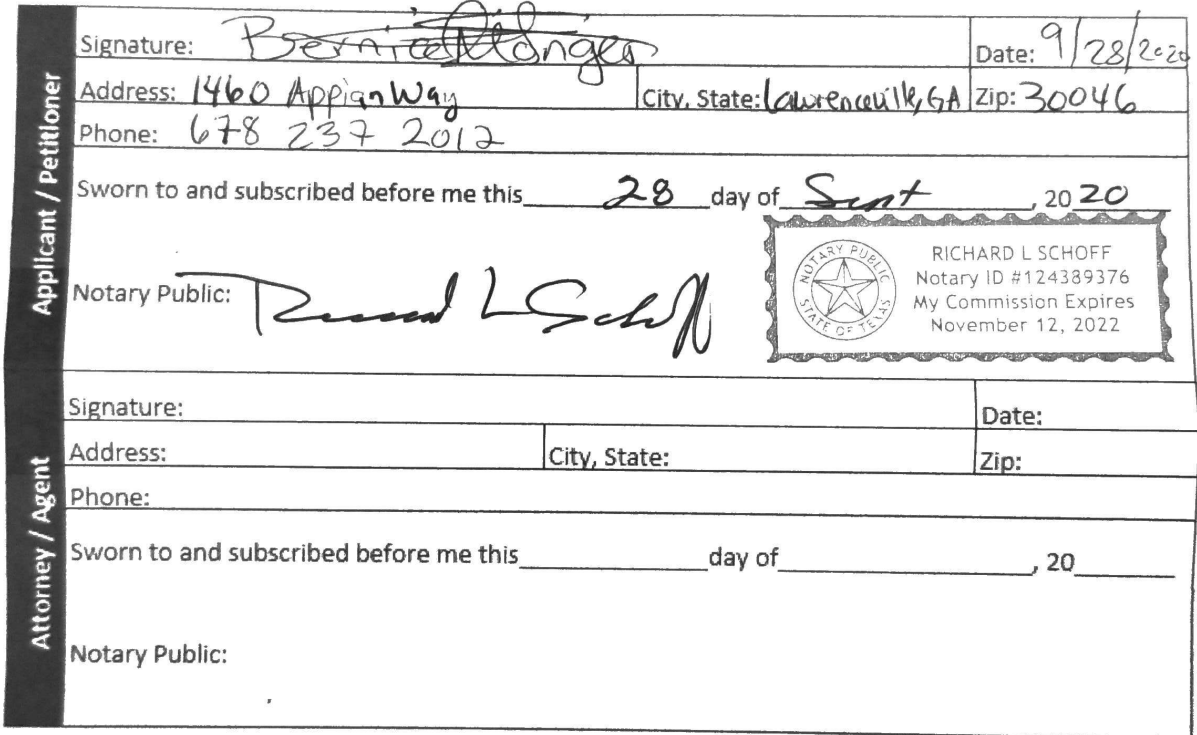 Applicant / Petitioner
Signature: Bernice
Date: 9/28/2020
Address: 1460 Appian Way
City, State: Lawrenceville, GA
Zip: 30046
Phone: 678 237 2012
Sworn to and subscribed before me this 28 day of Sept, 20 20
NOTARY PUBLIC
STATE OF TEXAS
RICHARD L SCHOFF
Notary ID #124389376
My Commission Expires
November 12, 2022
Notary Public: Richard L Schoff
Attorney / Agent
Signature:
Date:
Address:
City, State:
Zip:
Phone:
Sworn to and subscribed before me this____________day of________________, 20______
Notary Public: